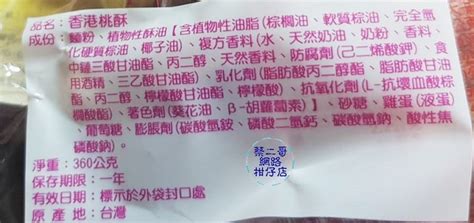 品名：香港桃酥
成份：麵粉、植物性酥油【含植物性油脂(棕櫚油、軟質棕油、完全氫
化硬質棕油、椰子油)、複方香料(水、天然奶油、奶粉、香料、
中鏈三酸甘油酯、丙二醇)、天然香料、防腐劑(己二烯酸鉀)、食
用酒精、三乙酸甘油酯)、乳化劑(脂肪酸丙二醇酯、脂肪酸甘油
酯、丙二醇、檸檬酸甘油酯)、抗氧化劑(L-抗壞血酸棕
櫚酸酯)、著色劑(葵花油、β-胡蘿蔔素)】、砂糖、雞蛋(液蛋)
、葡萄糖、膨脹劑(碳酸氫銨、磷酸二氫鈣、碳酸氫鈉、酸性焦
磷酸鈉)。
淨重：360公克
保存期限：一年
有效日期：標示於外袋封口處
原產地：台灣
蔡二哥
網路
柑仔店